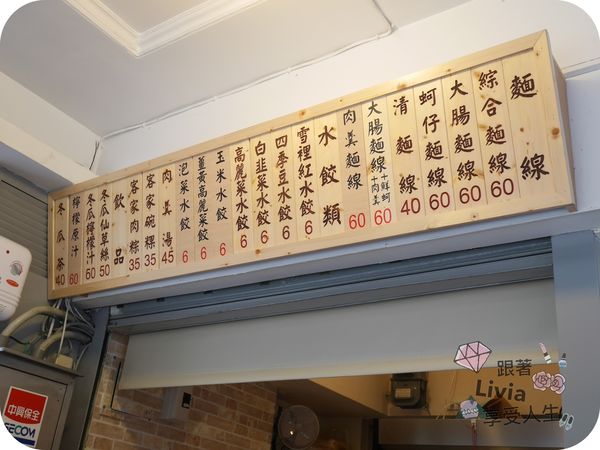 麵線
綜合麵線 60
大腸麵線 60
蚵仔麵線 60
清麵線 40
大腸麵線+鮮蚵+肉羹 60
肉羹麵線 60
水餃類
雪裡紅水餃 6
四季豆水餃 6
白韭菜水餃 6
高麗菜水餃 6
玉米水餃 6
薑黃高麗菜餃 6
泡菜水餃 6
肉羹湯 45
客家碗粿 35
客家肉粽 35
飲品
冬瓜仙草絲 50
冬瓜檸檬汁 60
檸檬原汁 60
冬瓜茶 40
中興保全
SECOM
跟著
Livia
享受人生